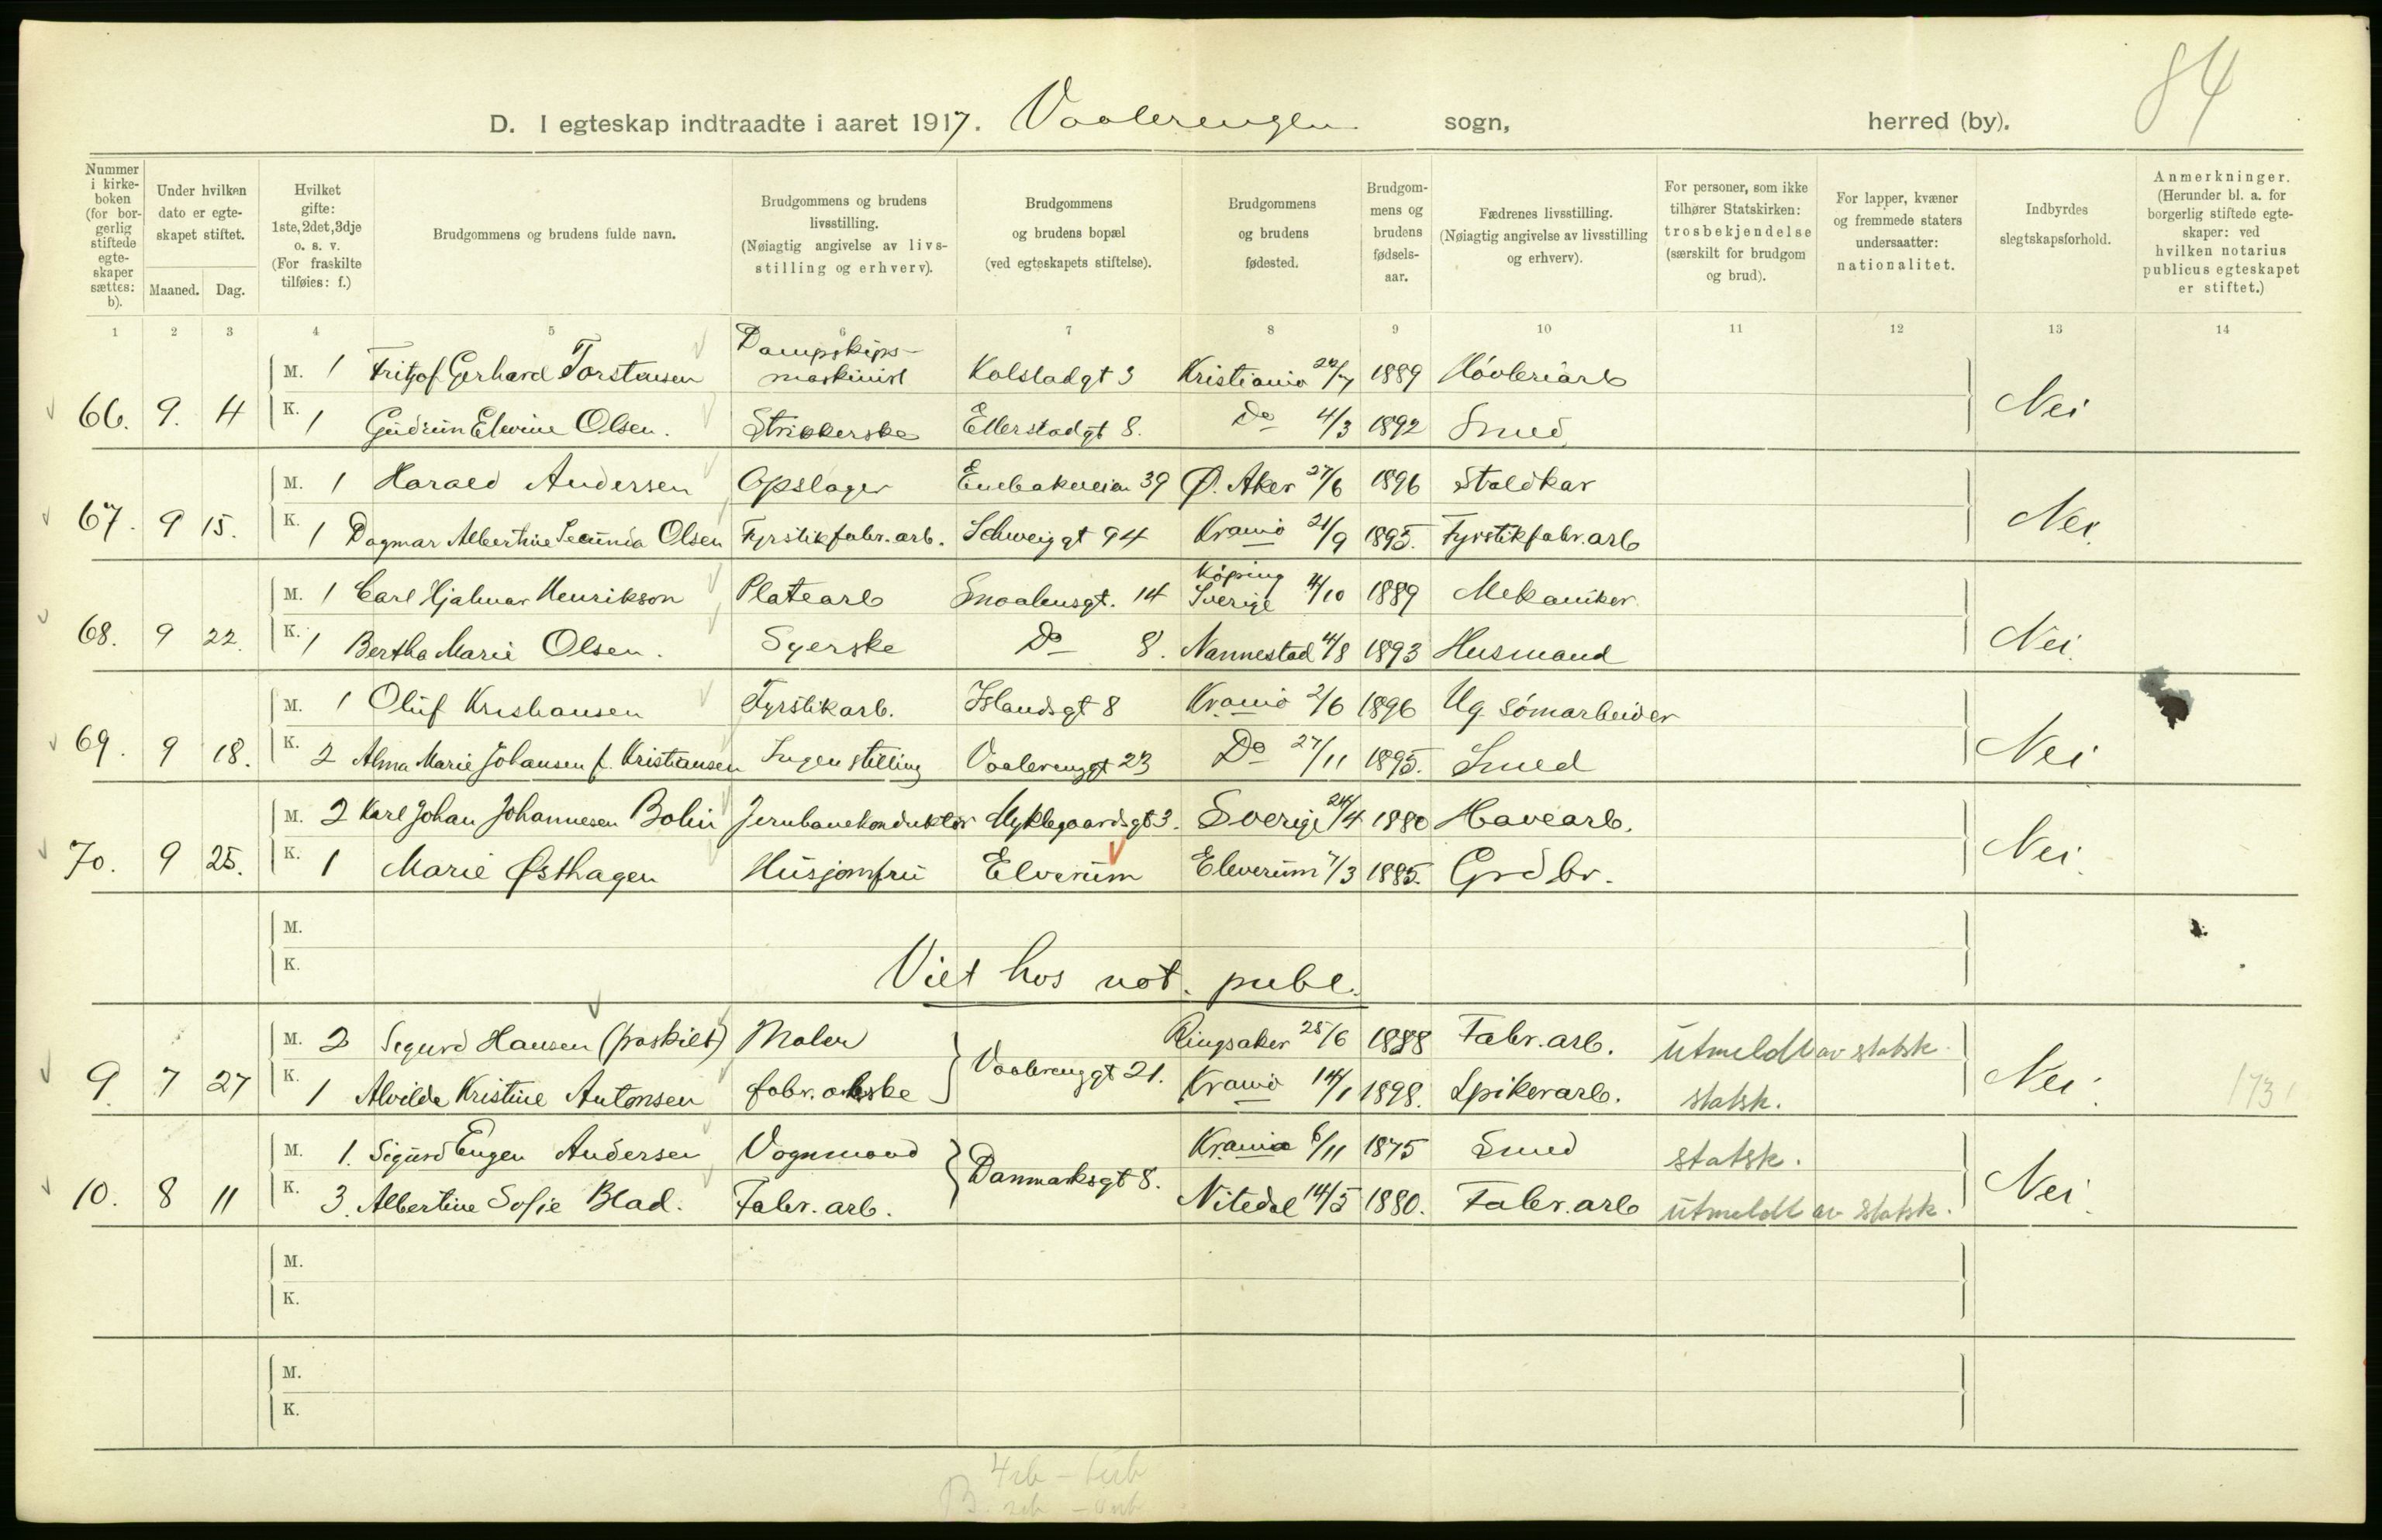 84
D. I egteskap indtraadte i aaret 1917. Vaalerengen sogn, herred (by).
Nummer i kirke-boken (for bor-gerlig stiftede egte-skaper sættes: b).
Under hvilken dato er egte-skapet stiftet.
Maaned. Dag.
Hvilket gifte: 1ste, 2det, 3dje o. s. v. (For fraskilte tilføies: f.)
Brudgommens og brudens fulde navn.
Brudgommens og brudens livsstilling. (Nøiagtig angivelse av livs-stilling og erhverv).
Brudgommens og brudens bopæl (ved egteskapets stiftelse).
Brudgommens og brudens fødested.
Brudgom-mens og brudens fødsels-aar.
Fædrenes livsstilling. (Nøiagtig angivelse av livsstilling og erhverv).
For personer, som ikke tilhører Statskirken: trosbekjendelse (særskilt for brudgom og brud).
For lapper, kvæner og fremmede staters undersaatter: nationalitet.
Indbyrdes slegtskapsforhold.
Anmerkninger. (Herunder bl. a. for borgerlig stiftede egte-skaper: ved hvilken notarius publicus egteskapet er stiftet.)
1 2 3 4 5 6 7 8 9 10 11 12 13 14
M. 1 Fritjof Gerhard Torstensen Dampskips-maskinist Kolstadgt 3 Kristiania 1889 Høvleriarb
66. 9. 4 K. 1 Gudrun Elevine Olsen. Strikkerske Ellerstadgt 8. Do 4/3 1892 Smed Nei
M. 1 Harald Andersen Opslager Enebakveien 39 Ø. Aker 27/6 1896 Staldkar
67. 9 15. K. 1 Dagmar Albertine Olsen Fyrstikfabr.arb. Schweiggt 94 Krania 21/9 1895. Fyrstikfabr.arb Nei.
M. 1 Carl Hjalmar Henrikson Platearb Smaalensgt. 14 Köping Sverige 4/10 1889 Mekaniker
68. 9 22. K. 1 Bertha Marie Olsen. Syerske Do 8. Nannestad 4/8 1893 Husmand Nei.
M. 1 Oluf Kristiansen Fyrstikarb. Islandsgt 8 Krania 2/6 1896 Ug. sømarbeider
69. 9 18. K. 2 Alma Marie Johansen f. Kristiansen Ingen stilling Vaalerenggt 23 Do 27/11 1895. Smed Nei
M. 2 Karl Johan Johannesen Bolin Jernbanekonduktør Myklegaardsgt 3. Sverige 24/4 1880 Havearb.
70. 9 25. K. 1 Marie Østhagen Husjomfru Elverum Eleverum 7/3 1885. Grdbr. Nei.
M.
K.
Viet hos not. publ.
M. 2 Sigurd Hansen (fraskilt) Maler Ringsaker 25/6 1888 Fabr.arb. utmeldt av statsk.
9. 7 27 K. 1 Alvilde Kristine Antonsen fabr.arbske Vaalerenggt 21. Krania 14/1 1898. Spikerarb. statsk. Nei.
1731
M. 1. Sigurd Eugen Andersen Vognmand Krania 6/11 1875 Smed statsk.
10. 8 11 K. 3. Albertine Sofie Blad. Fabr.arb. Danmarksgt 8. Nitedal 14/5 1880. Fabr.arb utmeldt av statsk. Nei.
M.
K.
M.
K.
B.